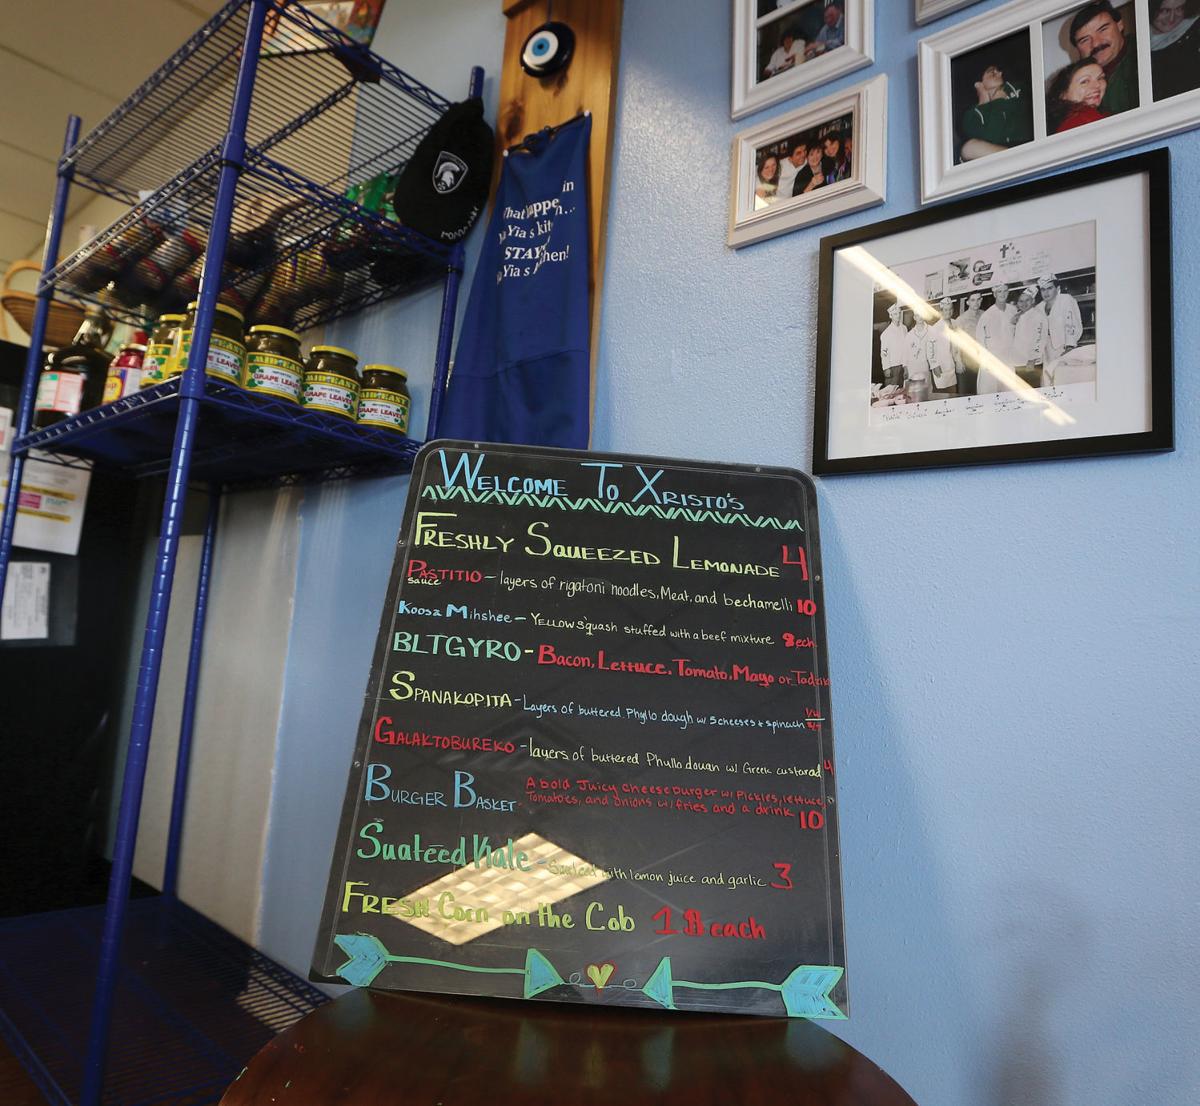 in
What happen
Yia Yia's kit n...
STAY
Yia Yia's hen!
MID EAST
GRAPE LEAVES
MID EAST
IMPORTED
GRAPE LEAVES
MID EAST
IMPORTED
GRAPE LEAVES
MID EAST
GRAPE LEAVES
WELCOME TO XRISTO'S
FRESHLY SQUEEZED LEMONADE 4
PASTITIO - layers of rigatoni noodles, Meat, and bechamelli 10
sauce
Koosa Mihshee - YELLOW squash stuffed with a beef mixture 8 ech
BLTGYRO - Bacon, Lettuce, Tomato, Mayo or
SPANAKOPITA - Layers of buttered Phyllo dough w/ 5 cheeses + spinach
GALAKTOBUREKO - layers of buttered Phyllo douan w/ Greek custarad 4
BURGER BASKET - A bold Juicy cheeseburger w/ Pickles, lettuce,
Tomatoes, and onions w/ fries and a drink 10
Suateed Kale - Sauteed with lemon juice and garlic 3
FRESH Corn on the Cob 1$ each